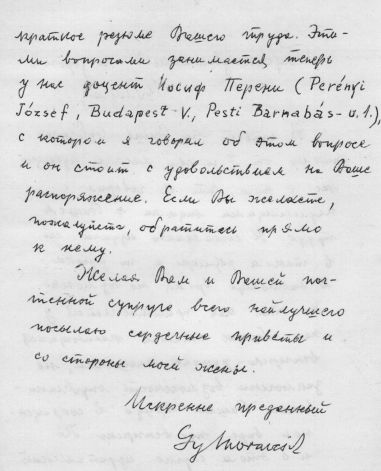 краткое резюме Вашего труда. Эти-
ми вопросами занимается теперь
у нас доцент Иосиф Перени (Perényi
József, Budapest V., Pesti Barnabás-u. 1.),
с котором я говорил об этом вопросе
и он стоит с удовольствием на Ваше
распоряжение. Если Вы желаете,
пожалуйста, обратитесь прямо
к нему.
Желая Вам и Вашей поч-
тенной супруге всего найлучшего
посылаю сердечные приветы и
со стороны моей жены.
Искренне преданный
Gy Moravcsik